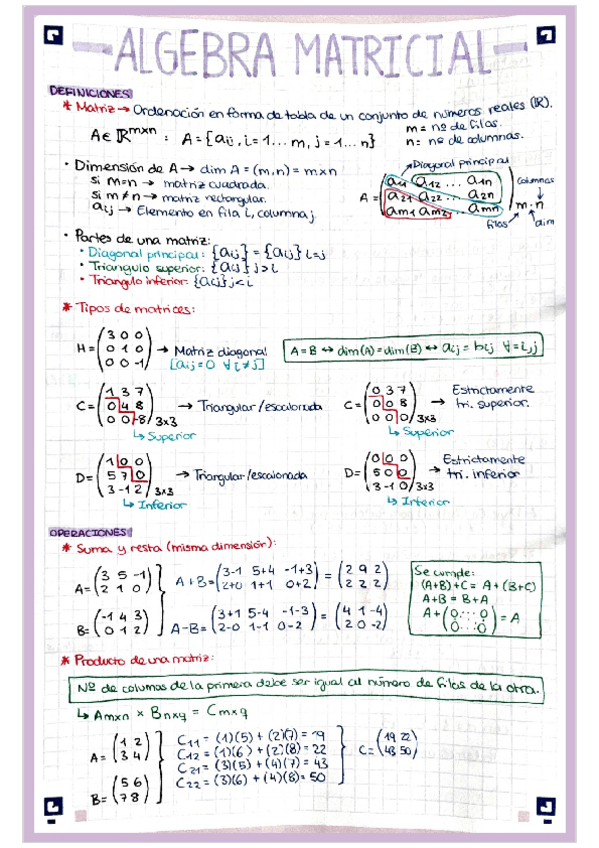 ALGEBRA MATRICIAL
DEFINICIONES
* Matriz → Ordenación en forma de tabla de un conjunto de números reales (ℝ).
A ∈ ℝ^mxn : A = {aij, i=1... m, j=1... n}
m = nº de filas.
n = nº de columnas.
· Dimensión de A → dim A = (m,n) = m×n
si m=n → matriz cuadrada.
si m≠n → matriz rectangular.
aij → Elemento en fila i, columna j.
Diagonal principal
A = (a11 a12 ... a1n
a21 a22 ... a2n
am1 am2 ... amn) m·n
columnas
filas
dim
· Partes de una matriz:
· Diagonal principal: {aij} = {aij} i=j
· Triangulo superior: {aij} j>i
· Triangulo inferior: {aij} j<i
* Tipos de matrices:
H = (3 0 0
0 1 0
0 0 -1) → Matriz diagonal
[aij = 0 ∀ i≠j]
A=B ↔ dim(A) = dim(B) ↔ aij = bij ∀=i,j
C = (1 3 7
0 4 8
0 0 -8) 3x3 → Triangular/escalonada
↳ Superior
C = (0 3 7
0 0 8
0 0 0) 3x3 → Estrictamente
tri. superior.
↳ Superior
D = (1 0 0
5 7 0
3 -1 2) 3x3 → Triangular/escalonada
↳ Inferior
D = (0 0 0
5 0 0
3 -1 0) 3x3 → Estrictamente
tri. inferior
↳ Inferior
OPERACIONES
* Suma y resta (misma dimensión):
A = (3 5 -1
2 1 0)
B = (-1 4 3
0 1 2)
A+B = (3-1 5+4 -1+3
2+0 1+1 0+2) = (2 9 2
2 2 2)
A-B = (3+1 5-4 -1-3
2-0 1-1 0-2) = (4 1 -4
2 0 -2)
Se cumple:
(A+B)+C = A+(B+C)
A+B = B+A
A + (0 ... 0
0 ... 0) = A
* Producto de una matriz:
Nº de columas de la primera debe ser igual al número de filas de la otra.
↳ Amxn × Bnxq = Cmxq
A = (1 2
3 4)
B = (5 6
7 8)
C11 = (1)(5) + (2)(7) = 19
C12 = (1)(6) + (2)(8) = 22
C21 = (3)(5) + (4)(7) = 43
C22 = (3)(6) + (4)(8) = 50
C = (19 22
43 50)